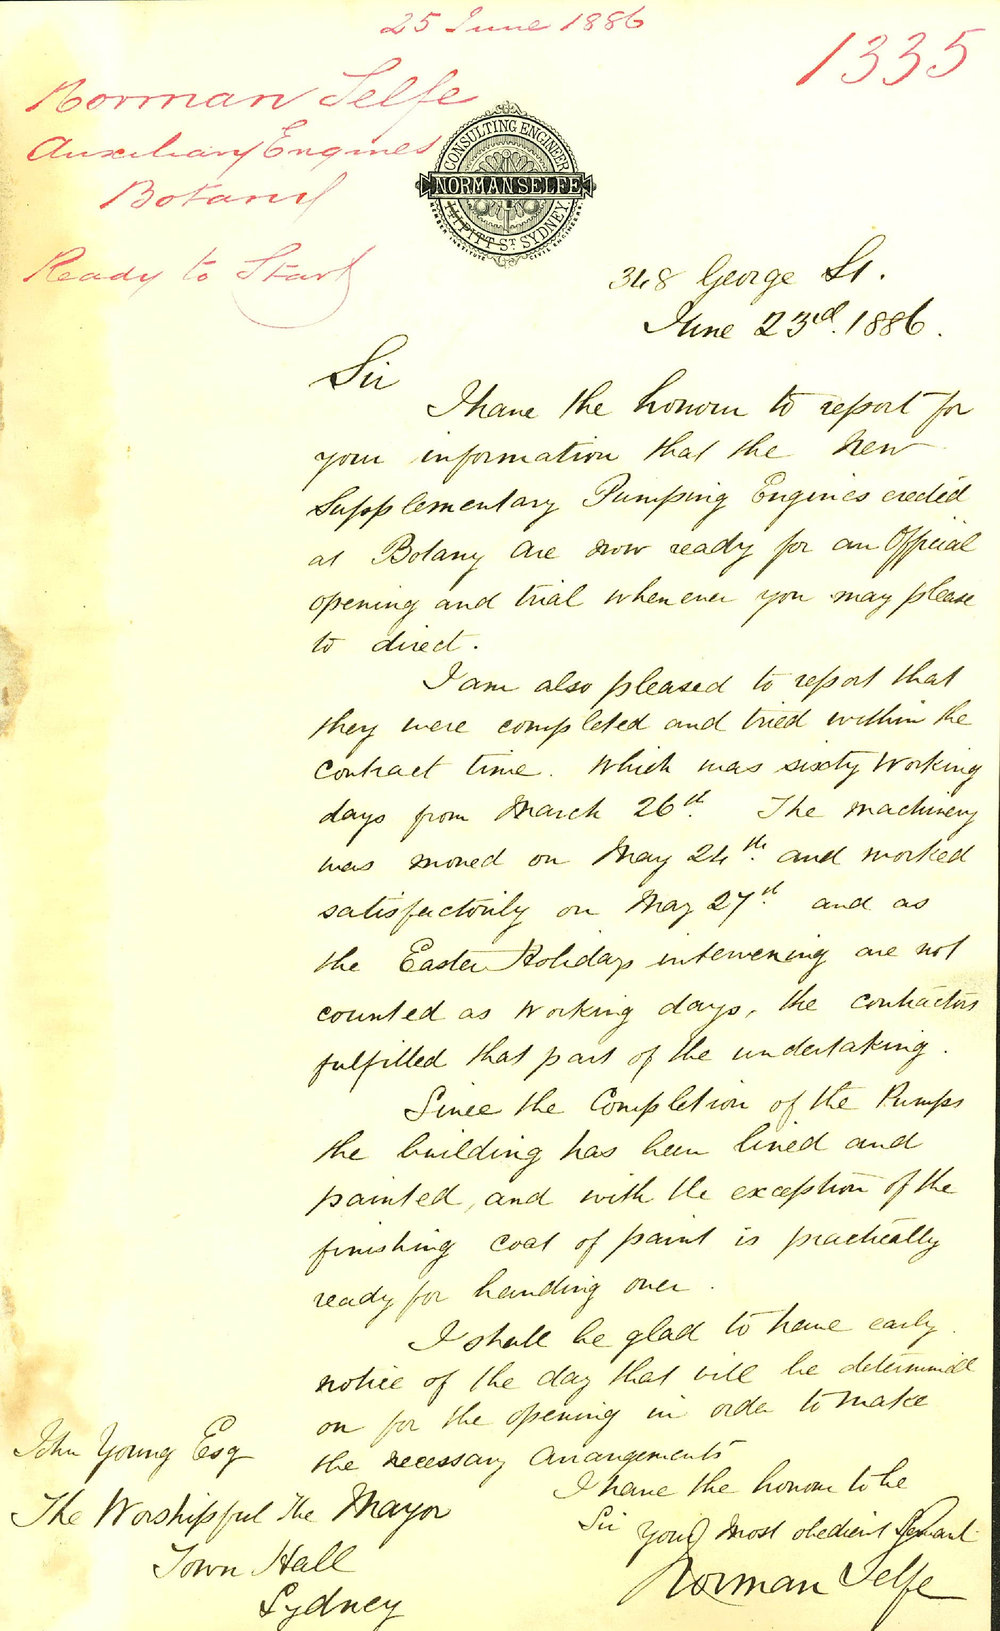 25 June 1886
1335
Norman Selfe
Auxiliary Engines
Botany
Ready to Start
CONSULTING ENGINEER
NORMAN SELFE
141 PITT ST. SYDNEY.
MEMBER INSTITUTE CIVIL ENGINEERS
348 George St.
June 23rd. 1886.
Sir
I have the honour to report for
your information that the New
Supplementary Pumping Engines erected
at Botany are now ready for an Official
opening and trial whenever you may please
to direct.
I am also pleased to report that
they were completed and tried within the
contract time. Which was sixty Working
days from March 26th. The machinery
was moved on May 24th. and worked
satisfactorily on May 27th. and as
the Easter Holidays intervening are not
counted as working days, the contractors
fulfilled that part of the undertaking.
Since the Completion of the Pumps
the building has been lined and
painted, and with the exception of the
finishing coat of paint is practically
ready for handing over.
I shall be glad to have early
notice of the day that will be determined
on for the opening in order to make
the necessary arrangements
I have the honour to be
Sir Your most obedient Servant
Norman Selfe
John Young Esq
The Worshipful the Mayor
Town Hall
Sydney